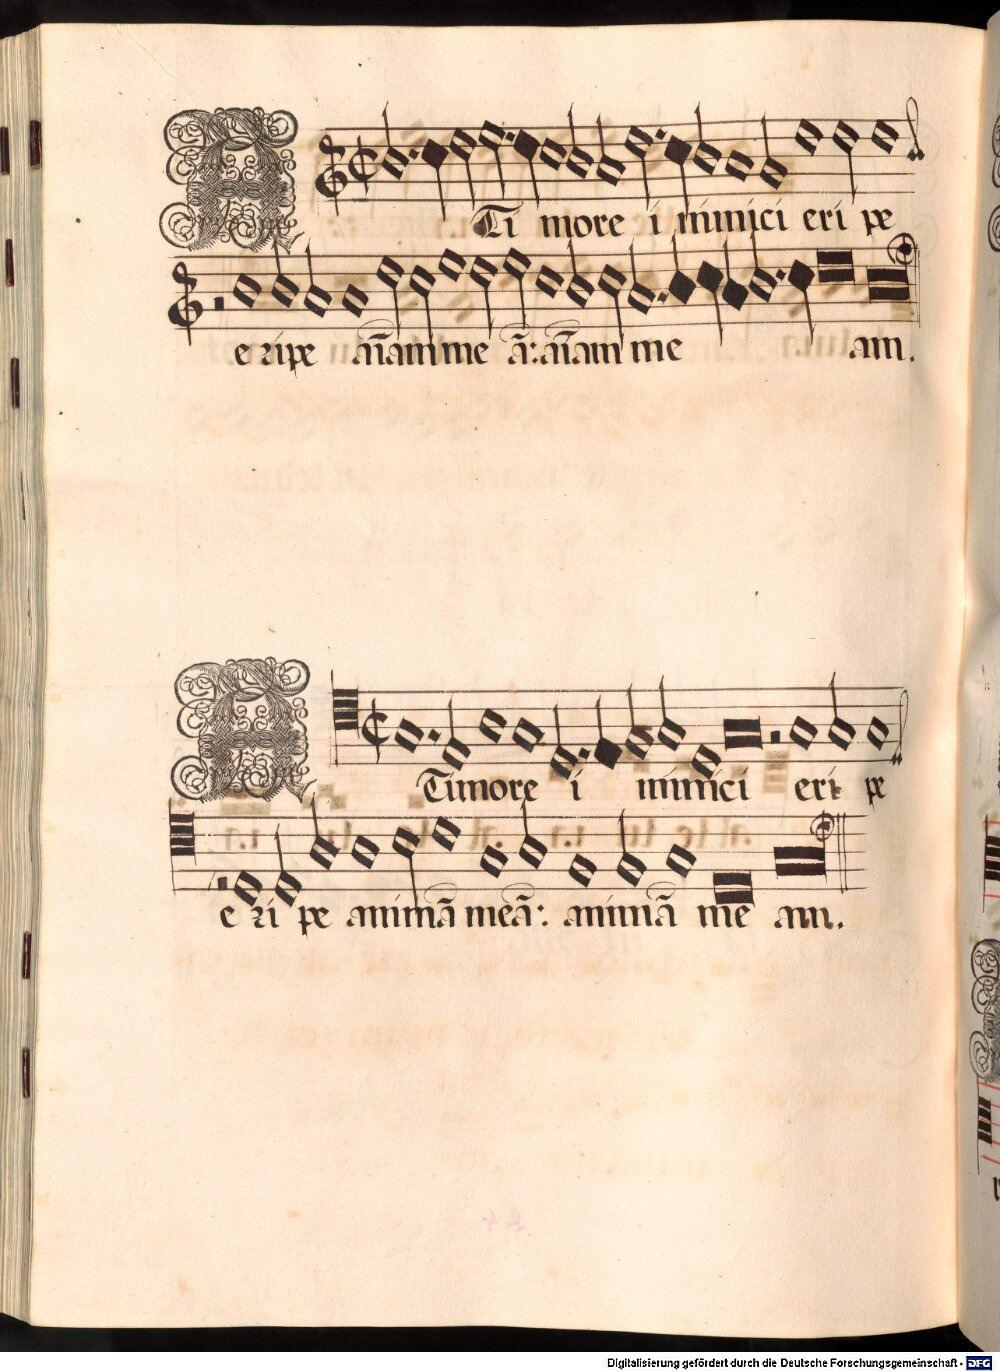 A Timore inimici eripe
eripe aīam meā: aīam meam.
A Timore inimici eripe
eripe animā meā: animā meam.
Digitalisierung gefördert durch die Deutsche Forschungsgemeinschaft - DFG